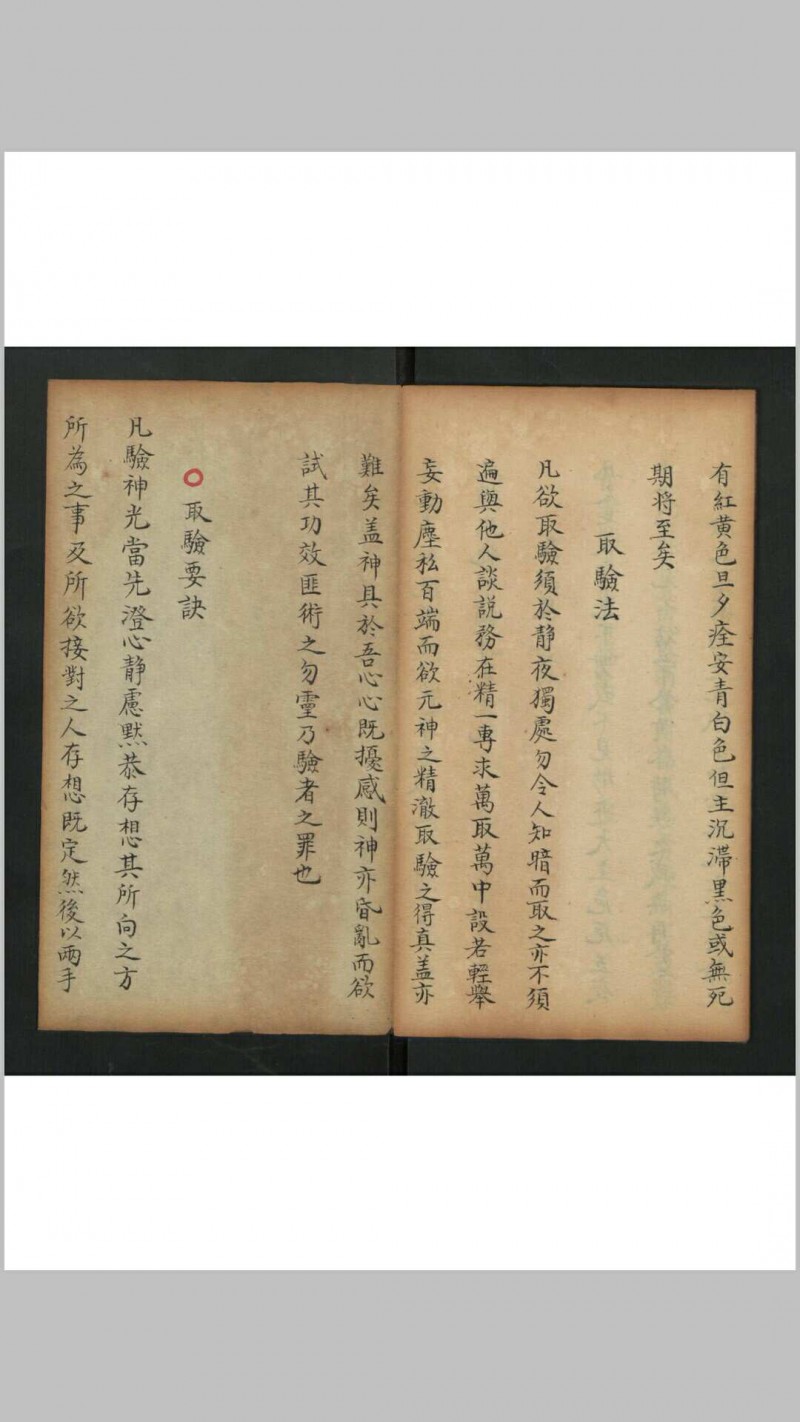 有紅黄色旦夕痊安青白色但主沉滯黒色或無死
期将至矣
取驗法
凡欲取驗須於静夜獨處勿令人知暗而取之亦不須
遍與他人談説務在精一專求萬取萬中設若輕舉
妄動塵私百端而欲元神之精澈取驗之得真盖亦
難矣盖神具於吾心心既擾惑則神亦昏亂而欲
試其功效匪術之勿靈乃驗者之罪也
○取驗要訣
凡驗神光當先澄心静慮默恭存想其所向之方
所為之事及所欲接對之人存想既定然後以兩手